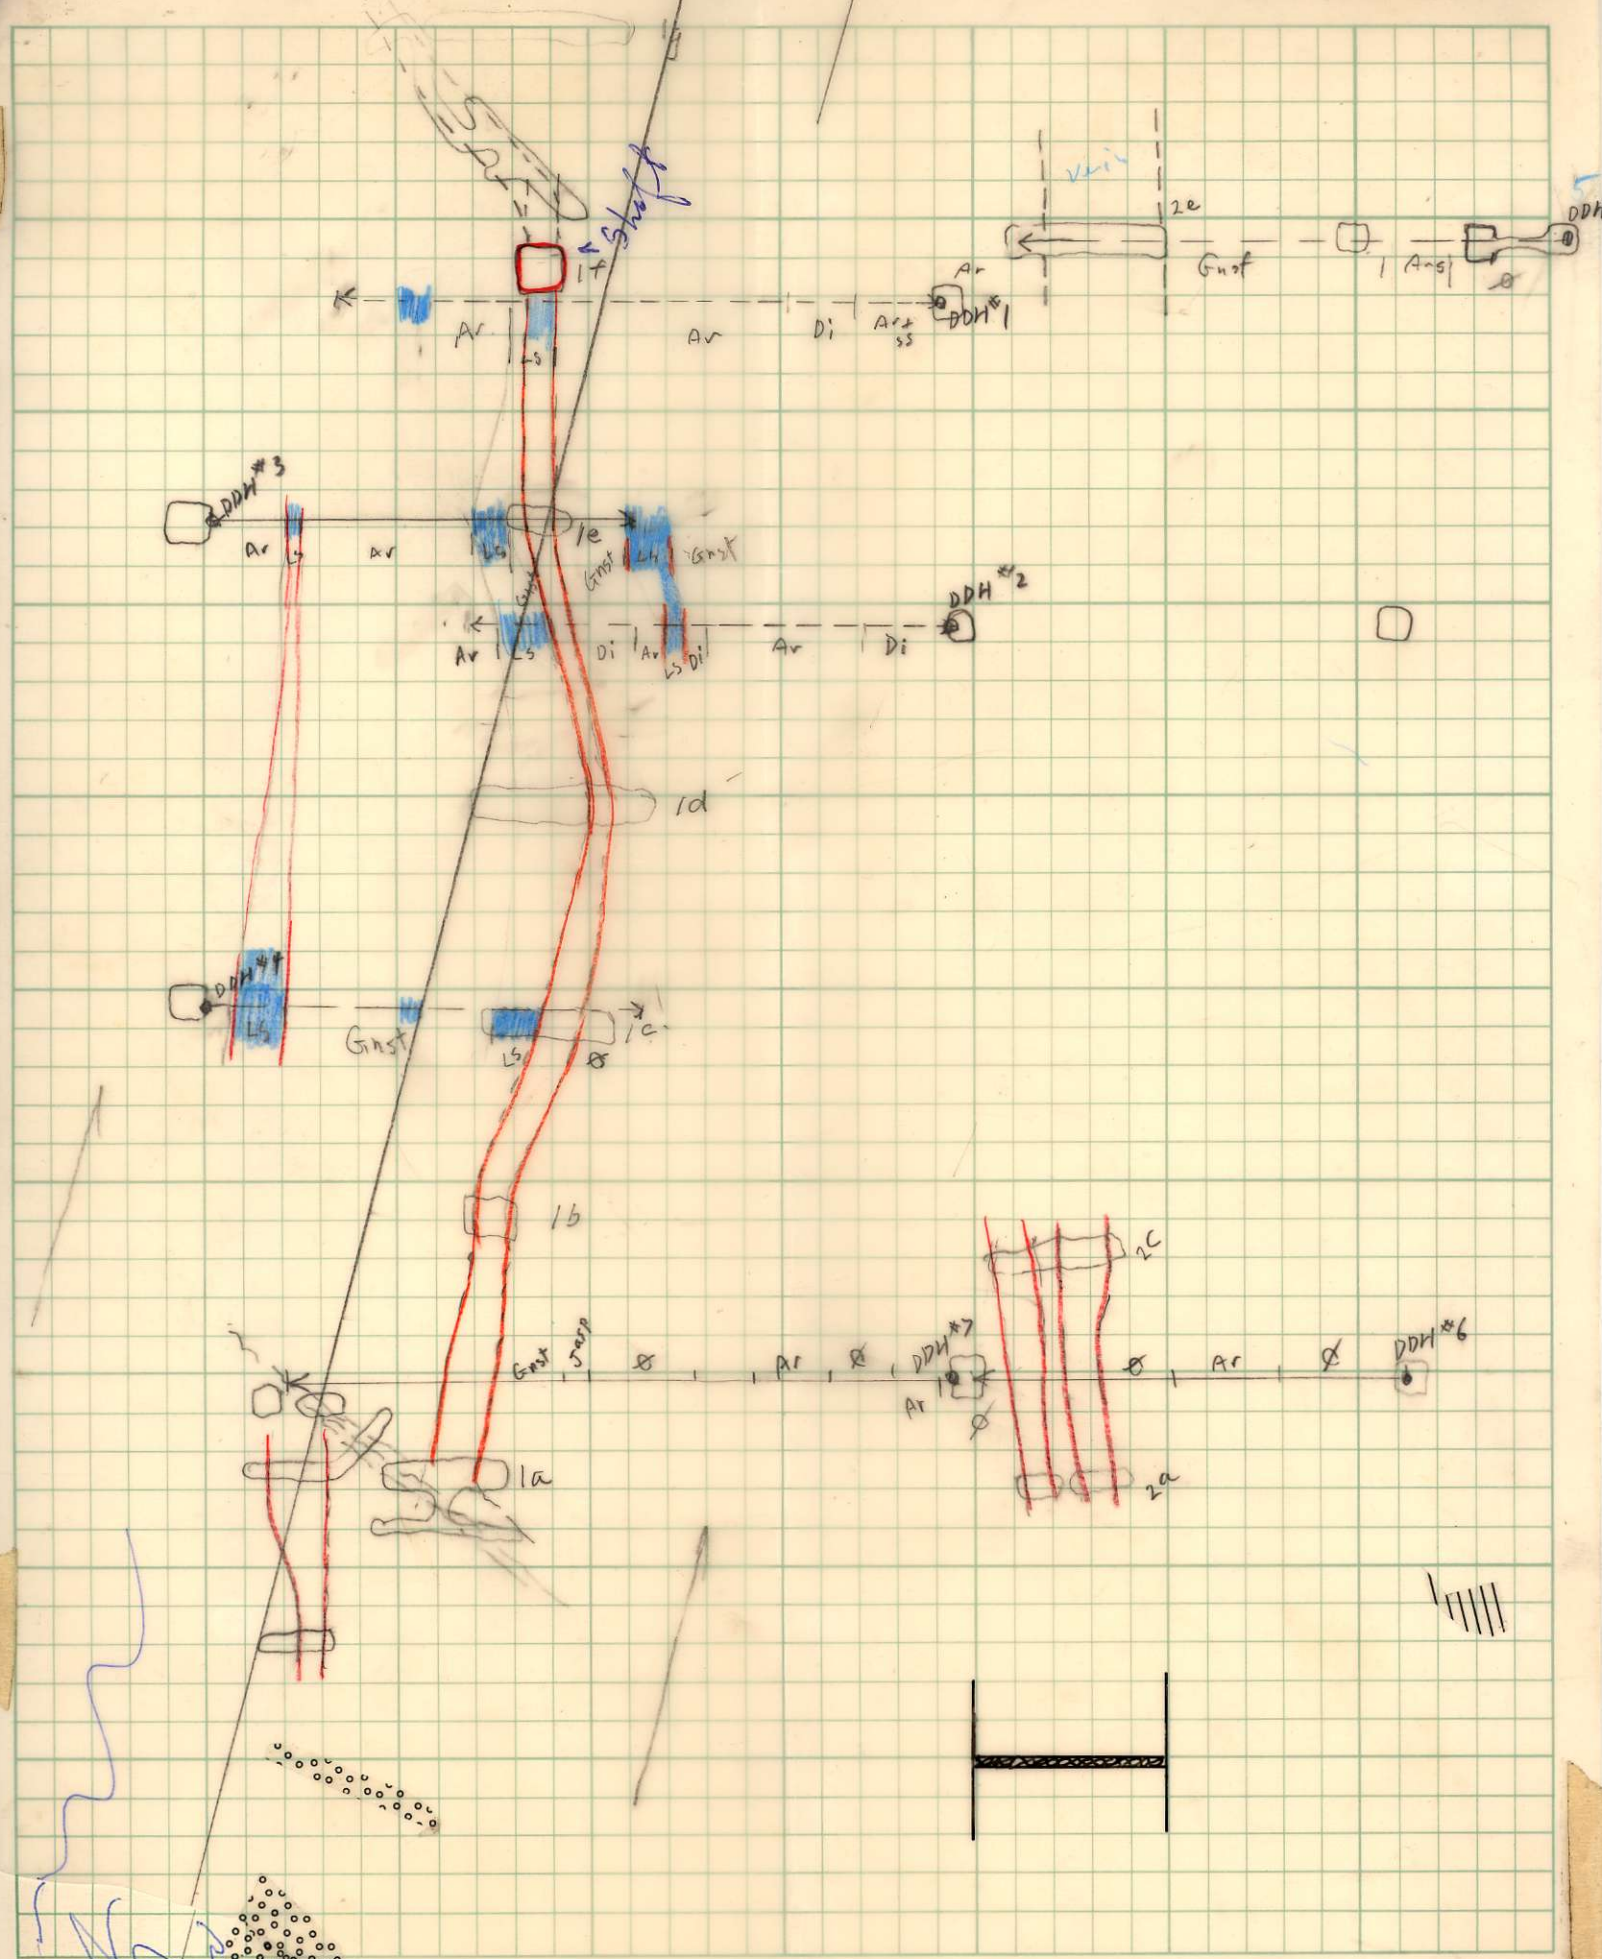 Shaft
2e
DDH
1f
Gnst
Ar
DDH#1
Ar
LS
Ar
Di
Ar+
ss
DDH#3
Ar
LS
Ar
LS
1e
Gnst
LS
Gnst
DDH#2
Ar
LS
Di
Ar
LS
Di
Ar
Di
1d
DDH#4
LS
Gnst
LS
ø
1c
1b
2c
Gnst
Jasp
ø
Ar
ø
DDH#7
Ar
ø
ø
Ar
ø
DDH#6
1a
2a